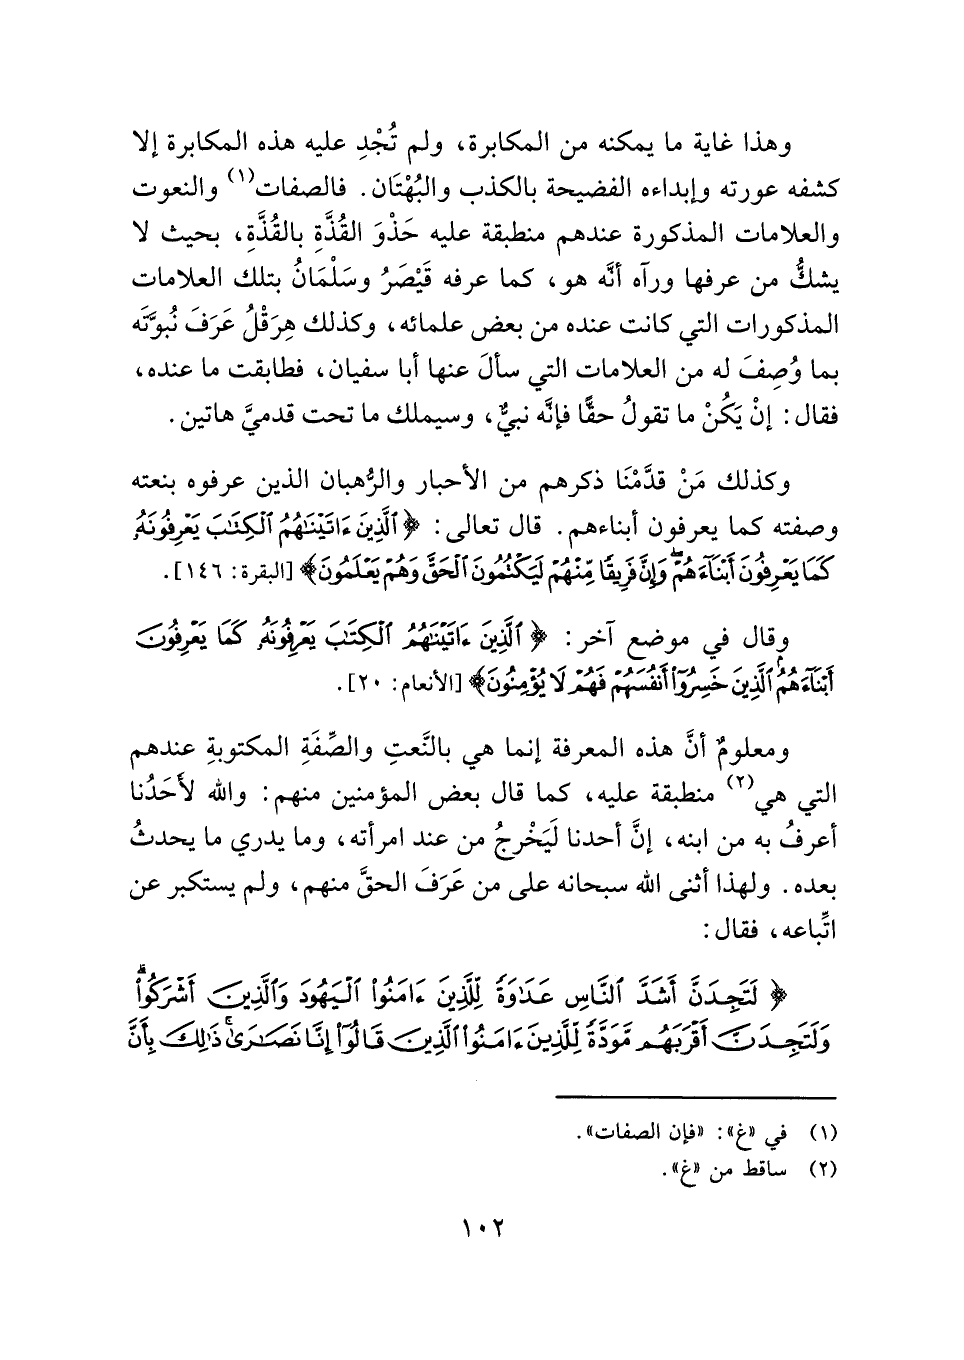 وهذا غاية ما يمكنه من المكابرة، ولم تُجْدِ عليه هذه المكابرة إلا
كشفه عورته وإبداءه الفضيحة بالكذب والبُهْتَان. فالصفات(١) والنعوت
والعلامات المذكورة عندهم منطبقة عليه حَذْوَ القُذَّةِ بالقُذَّةِ، بحيث لا
يشكُّ من عرفها ورآه أنَّه هو، كما عرفه قَيْصَرُ وسَلْمَانُ بتلك العلامات
المذكورات التي كانت عنده من بعض علمائه، وكذلك هِرَقْلُ عَرَفَ نُبوَّتَه
بما وُصِفَ له من العلامات التي سألَ عنها أبا سفيان، فطابقت ما عنده،
فقال: إنْ يَكُنْ ما تقولُ حقًّا فإنَّه نبيٌّ، وسيملك ما تحت قدميَّ هاتين.
وكذلك مَنْ قدَّمْنَا ذكرهم من الأحبار والرُّهبان الذين عرفوه بنعته
وصفته كما يعرفون أبناءهم. قال تعالى: ﴿ٱلَّذِينَ ءَاتَيۡنَٰهُمُ ٱلۡكِتَٰبَ يَعۡرِفُونَهُۥ
كَمَا يَعۡرِفُونَ أَبۡنَآءَهُمۡۖ وَإِنَّ فَرِيقٗا مِّنۡهُمۡ لَيَكۡتُمُونَ ٱلۡحَقَّ وَهُمۡ يَعۡلَمُونَ﴾ [البقرة: ١٤٦].
وقال في موضع آخر: ﴿ٱلَّذِينَ ءَاتَيۡنَٰهُمُ ٱلۡكِتَٰبَ يَعۡرِفُونَهُۥ كَمَا يَعۡرِفُونَ
أَبۡنَآءَهُمُۘ ٱلَّذِينَ خَسِرُوٓاْ أَنفُسَهُمۡ فَهُمۡ لَا يُؤۡمِنُونَ﴾ [الأنعام: ٢٠].
ومعلومٌ أنَّ هذه المعرفة إنما هي بالنَّعتِ والصِّفَةِ المكتوبةِ عندهم
التي هي(٢) منطبقة عليه، كما قال بعض المؤمنين منهم: والله لأَحَدُنا
أعرفُ به من ابنه، إنَّ أحدنا لَيَخْرجُ من عند امرأته، وما يدري ما يحدثُ
بعده. ولهذا أثنى الله سبحانه على من عَرَفَ الحقَّ منهم، ولم يستكبر عن
اتِّباعه، فقال:
﴿لَتَجِدَنَّ أَشَدَّ ٱلنَّاسِ عَدَٰوَةٗ لِّلَّذِينَ ءَامَنُواْ ٱلۡيَهُودَ وَٱلَّذِينَ أَشۡرَكُواْۖ
وَلَتَجِدَنَّ أَقۡرَبَهُم مَّوَدَّةٗ لِّلَّذِينَ ءَامَنُواْ ٱلَّذِينَ قَالُوٓاْ إِنَّا نَصَٰرَىٰۚ ذَٰلِكَ بِأَنَّ
(١) في «غ»: «فإن الصفات».
(٢) ساقط من «غ».
١٠٢